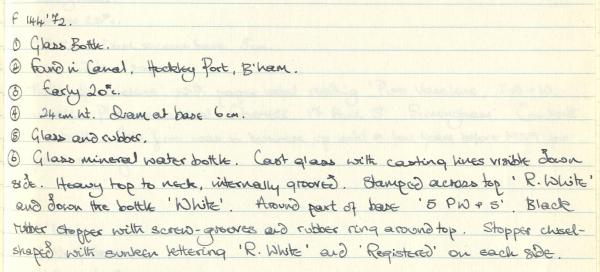 F 144'72.
① Glass Bottle.
② Found in Canal, Hockley Port, B'ham.
③ Early 20thC.
④ 24 cm ht. Diam at base 6 cm.
⑤ Glass and rubber.
⑥ Glass mineral water bottle. Cast glass with casting lines visible down
side. Heavy top to neck, internally grooved. Stamped across top 'R. White'
and down the bottle 'White'. Around part of base '5 PW & S'. Black
rubber stopper with screw-grooves and rubber ring around top. Stopper chisel-
shaped with sunken lettering 'R. White' and 'Registered' on each side.